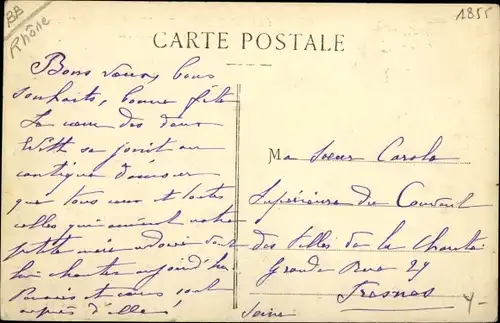 BB
Rhône
1855
CARTE POSTALE
Bons vœux, bons
souhaits, bonne fête
Le cœur des deux
se joint au
cantique d'amour
que tous ceux et toutes
celles qui aiment notre
petite mère adorée vont
lui chanter aujourd'hui
et sont
auprès d'elle!
Ma Sœur Carole
Supérieure du Couvent
des Filles de la Charité
Grande Rue 27
Fresnes
Seine